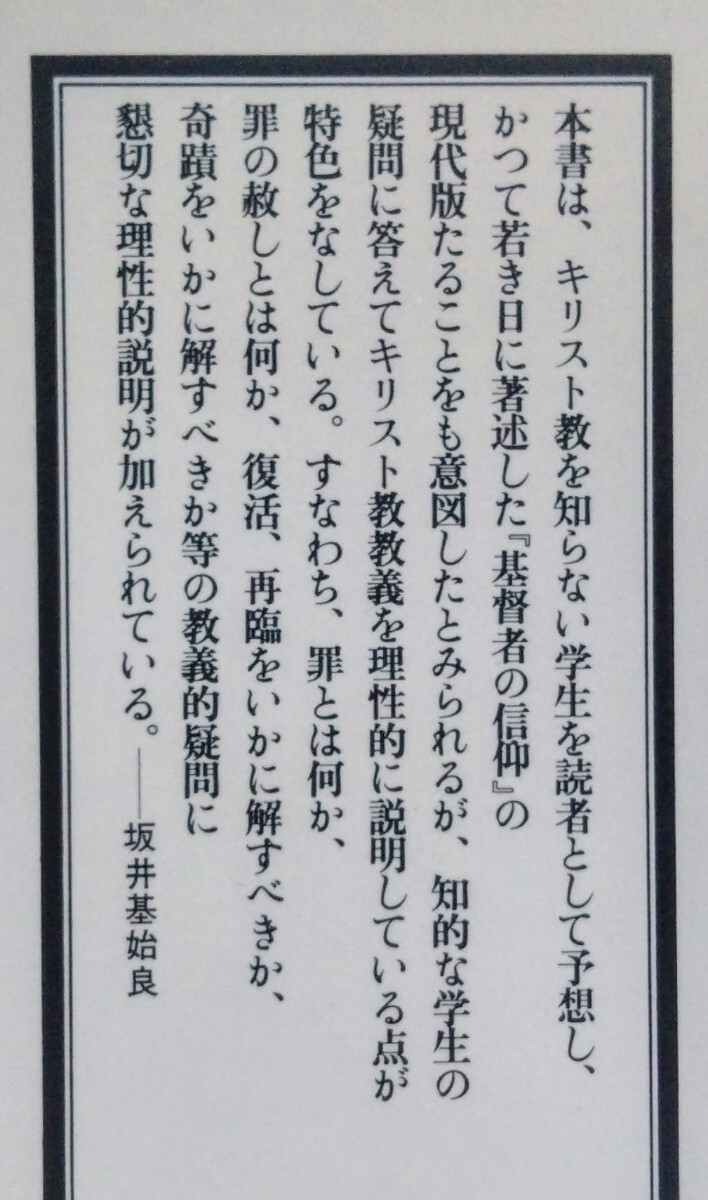 本書は、キリスト教を知らない学生を読者として予想し、
かつて若き日に著述した『基督者の信仰』の
現代版たることをも意図したとみられるが、知的な学生の
疑問に答えてキリスト教教義を理性的に説明している点が
特色をなしている。すなわち、罪とは何か、
罪の赦しとは何か、復活、再臨をいかに解すべきか、
奇蹟をいかに解すべきか等の教義的疑問に
懇切な理性的説明が加えられている。——坂井基始良